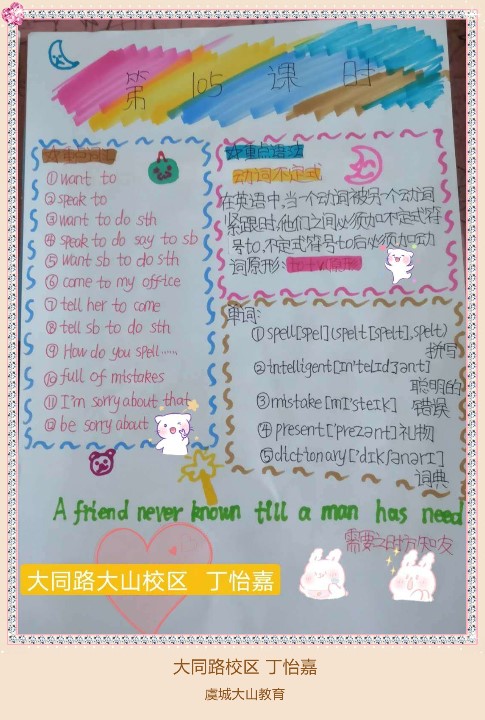 第 105 课时
一、重点词汇
①want to
②speak to
③want to do sth
④speak to do say to sb
⑤want sb to do sth
⑥come to my office
⑦tell her to come
⑧tell sb to do sth
⑨How do you spell……
⑩full of mistakes
⑪I'm sorry about that
⑫be sorry about
重点语法
动词不定式
在英语中,当一个动词被另一个动词
紧跟时,他们之间必须加不定式符
号to,不定式符号to后必须加动
词原形:to+v原形
单词:
①spell[spel](spelt[spelt],spelt)
拼写
②intelligent[ɪn'telɪdʒənt]
聪明的
③mistake[mɪ'steɪk] 错误
④present['prezənt]礼物
⑤dictionary['dɪkʃənərɪ]
词典
A friend never known till a man has need
需要之时方知友
大同路大山校区 丁怡嘉
大同路校区 丁怡嘉
虞城大山教育